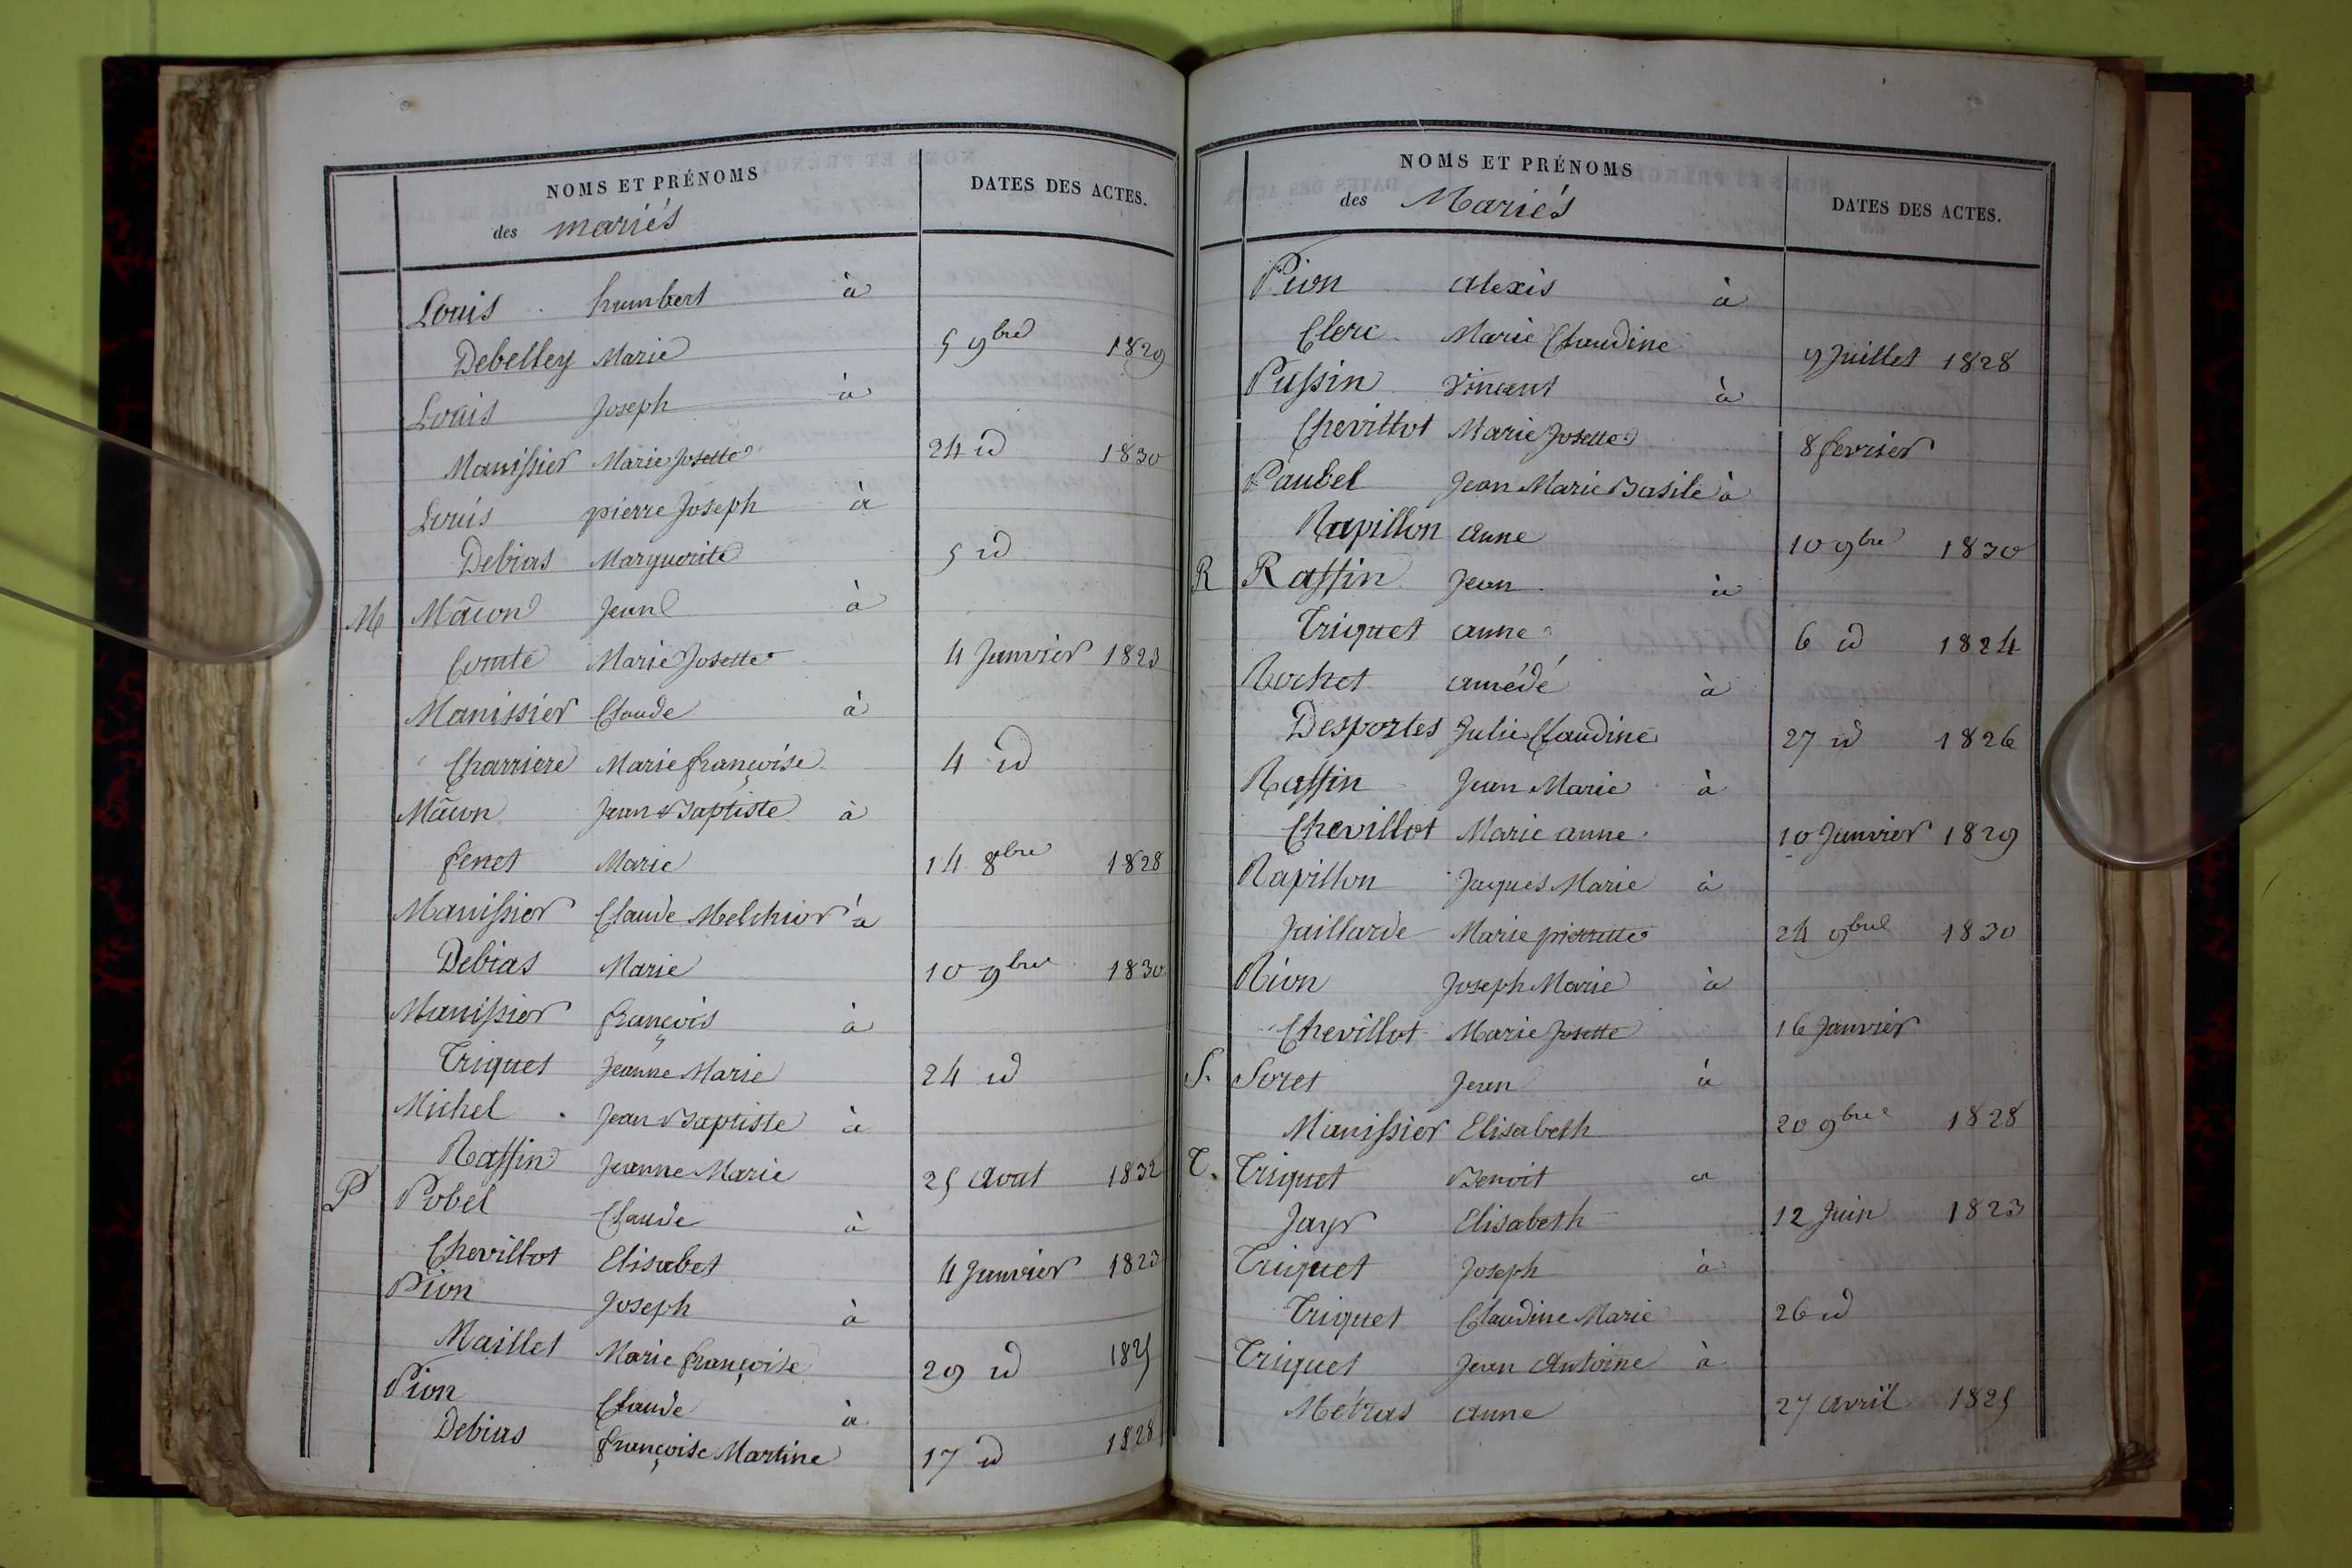 NOMS ET PRÉNOMS
des mariés
DATES DES ACTES.
Louis humbert à
Debelley Marie 5 9bre 1829
Louis Joseph à
Manissier Marie Josette 24 id 1830
Louis pierre Joseph à
Debias Marguerite 5 id
M Mâcon Jean à
Comte Marie Josette 4 Janvier 1823
Manissier Claude à
Charriere Marie françoise 4 id
Mâcon Jean Baptiste à
fenet Marie 14 8bre 1828
Manissier Claude Melchior à
Debias Marie 10 9bre 1830
Manissier françois à
Triquet Jeanne Marie 24 id
Michel Jean Baptiste à
Raffin Jeanne Marie 25 Aout 1832
P Pobel Claude à
Chevillot Elisabet 4 Janvier 1823
Pion Joseph à
Maillet Marie françoise 29 id 1825
Pion Claude à
Debias françoise Martine 17 id 1828
NOMS ET PRÉNOMS
des Mariés
DATES DES ACTES.
Pion Alexis à
Clerc Marie Claudine 9 Juillet 1828
Pussin Vincent à
Chevillot Marie Josette 8 fevrier
Paubel Jean Marie Basile à
Rapillon Anne 10 9bre 1830
R Raffin Jean à
Triquet anne 6 id 1824
Rochet amédé à
Desportes Julie Claudine 27 id 1826
Raffin Jean Marie à
Chevillot Marie anne 10 Janvier 1829
Rapillon Jaques Marie à
Jaillarde Marie pierrette 24 9bre 1830
Rion Joseph Marie à
Chevillot Marie Josette 16 Janvier
S. Soret Jean à
Manissier Elisabeth 20 9bre 1828
T. Triquet Benoit a
Jayr Elisabeth 12 Juin 1823
Triquet Joseph à
Triquet Claudine Marie 26 id
Triquet Jean Antoine à
Métras anne 27 avril 1825